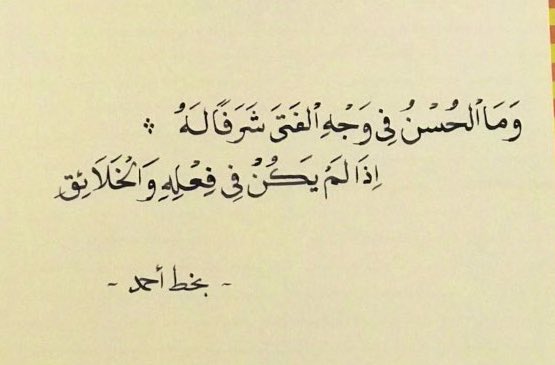 وَمَا ٱلْحُسْنُ فِي وَجْهِ ٱلْفَتَىٰ شَرَفًا لَهُ ❖
إِذَا لَمْ يَكُنْ فِي فِعْلِهِ وَٱلْخَلَائِقِ
- بخط أحمد -